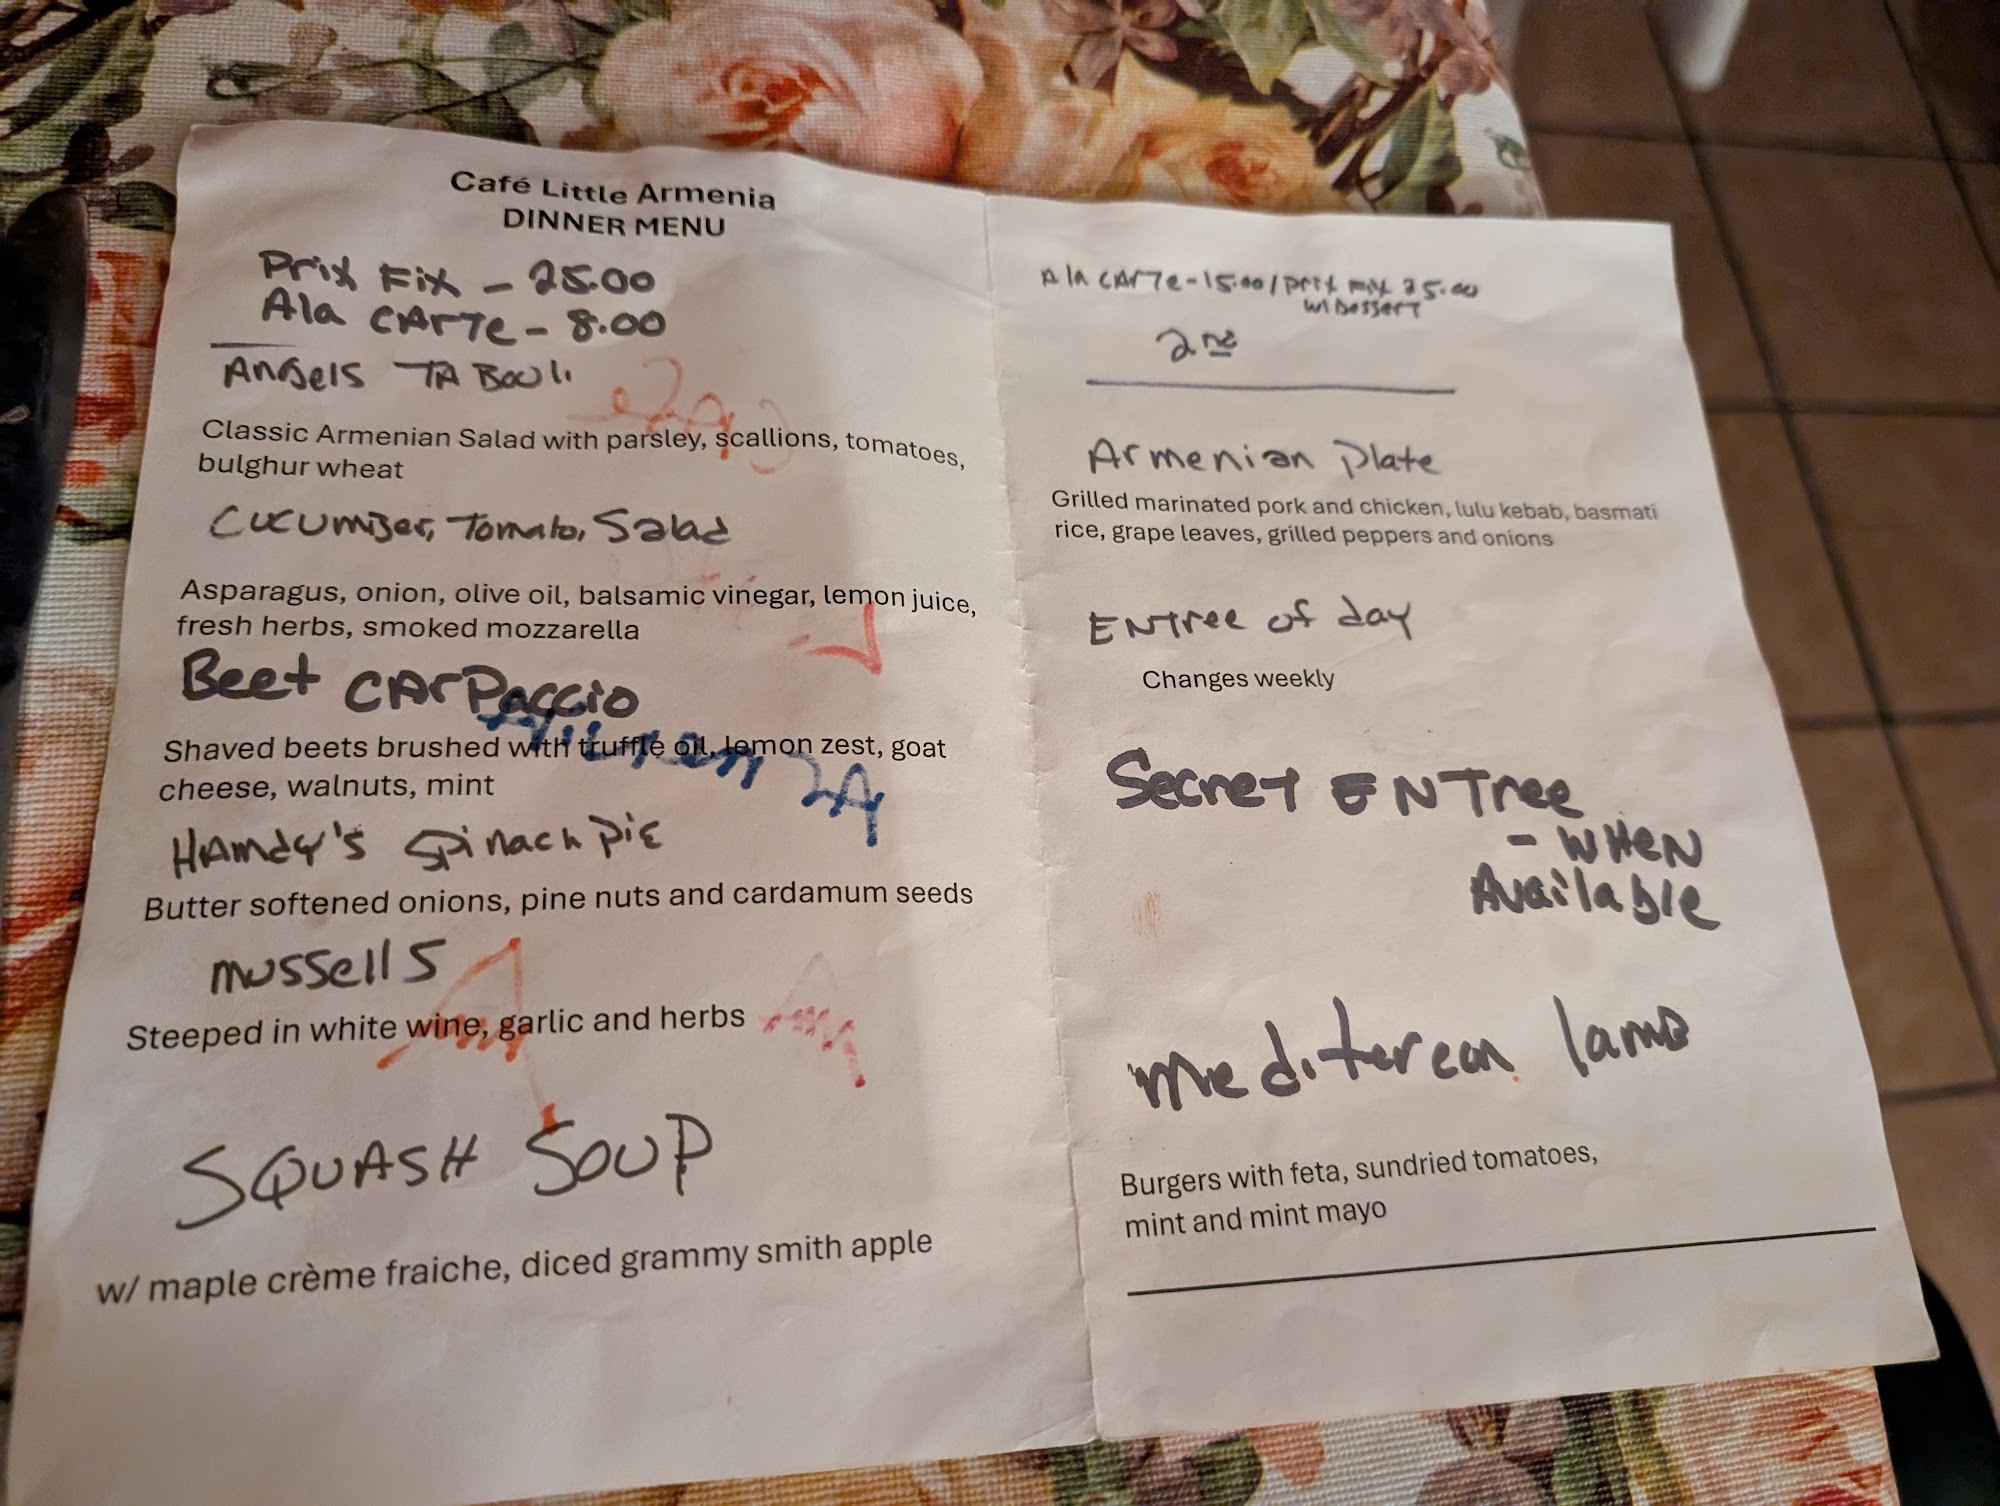 Café Little Armenia
DINNER MENU
Prix Fix - 25.00
Ala CArTe - 8.00
Angels TA Bouli
Classic Armenian Salad with parsley, scallions, tomatoes,
bulghur wheat
Cucumber, Tomato, Salad
Asparagus, onion, olive oil, balsamic vinegar, lemon juice,
fresh herbs, smoked mozzarella
Beet CArPaccio
Shaved beets brushed with truffle oil, lemon zest, goat
cheese, walnuts, mint
HAmdy's Spinach Pie
Butter softened onions, pine nuts and cardamum seeds
mussells
Steeped in white wine, garlic and herbs
SQUASH SOUP
w/ maple crème fraiche, diced grammy smith apple
Ala CArTe - 15.00 / Prix Fix 25.00
w/ Dessert
2nd
Armenian Plate
Grilled marinated pork and chicken, lulu kebab, basmati
rice, grape leaves, grilled peppers and onions
ENTree of day
Changes weekly
Secret ENTree
- WHeN
Available
mediterean lamb
Burgers with feta, sundried tomatoes,
mint and mint mayo